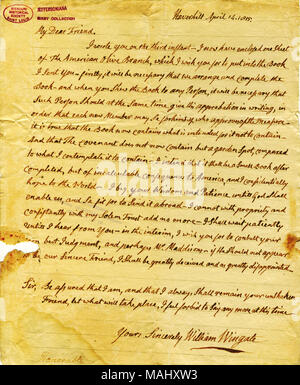 MISSOURI HISTORICAL SOCIETY
JEFFERSONIANA
BIXBY COLLECTION
Haverhill April 14, 1815.
My Dear Friend,
I wrote you on the third instant - I now have enclosed one Sheet
of The American Olive Branch, which I wish you for to put into the Book
I sent You - firstly, it will be necessary that we arrange and complete the
Book - and when you shew the Book to any Person, it will be necessary that
Such Person should at the same time, give his approbation in writing, in
order that each new Member may Se for himself who approves of the Measure
it is true that the Book now contains what is intended for it not to contain -
And that The covenant does not now contain but a garden Spot, compared
to what I contemplate it to contain - I intend that it Shall be a Small Book after
completed, but of incalculable consequence to America, and I confidentially
hope to the World - I beg your Wisdom and Patience, untill God Shall
enable us, and Se fit for to Send it abroad - I cannot with propriety, and
consistantly with my Solem Trust add no more - I Shall wait patiently
untill I hear from You - in the interim, I wish you for to consult your
best Judgment, and perhaps Mr. Maddison - if He should not appear
our Sincere Friend, I Shall be greatly deceived and as greatly disappointed
Sir, Be assured that I am, and that I always, Shall remain your unshaken
Friend, let what will take place, I feel forbid to Say any more at this time
Yours, Sincerely William Wingate
alamy
Image ID: MAHXW3
www.alamy.com